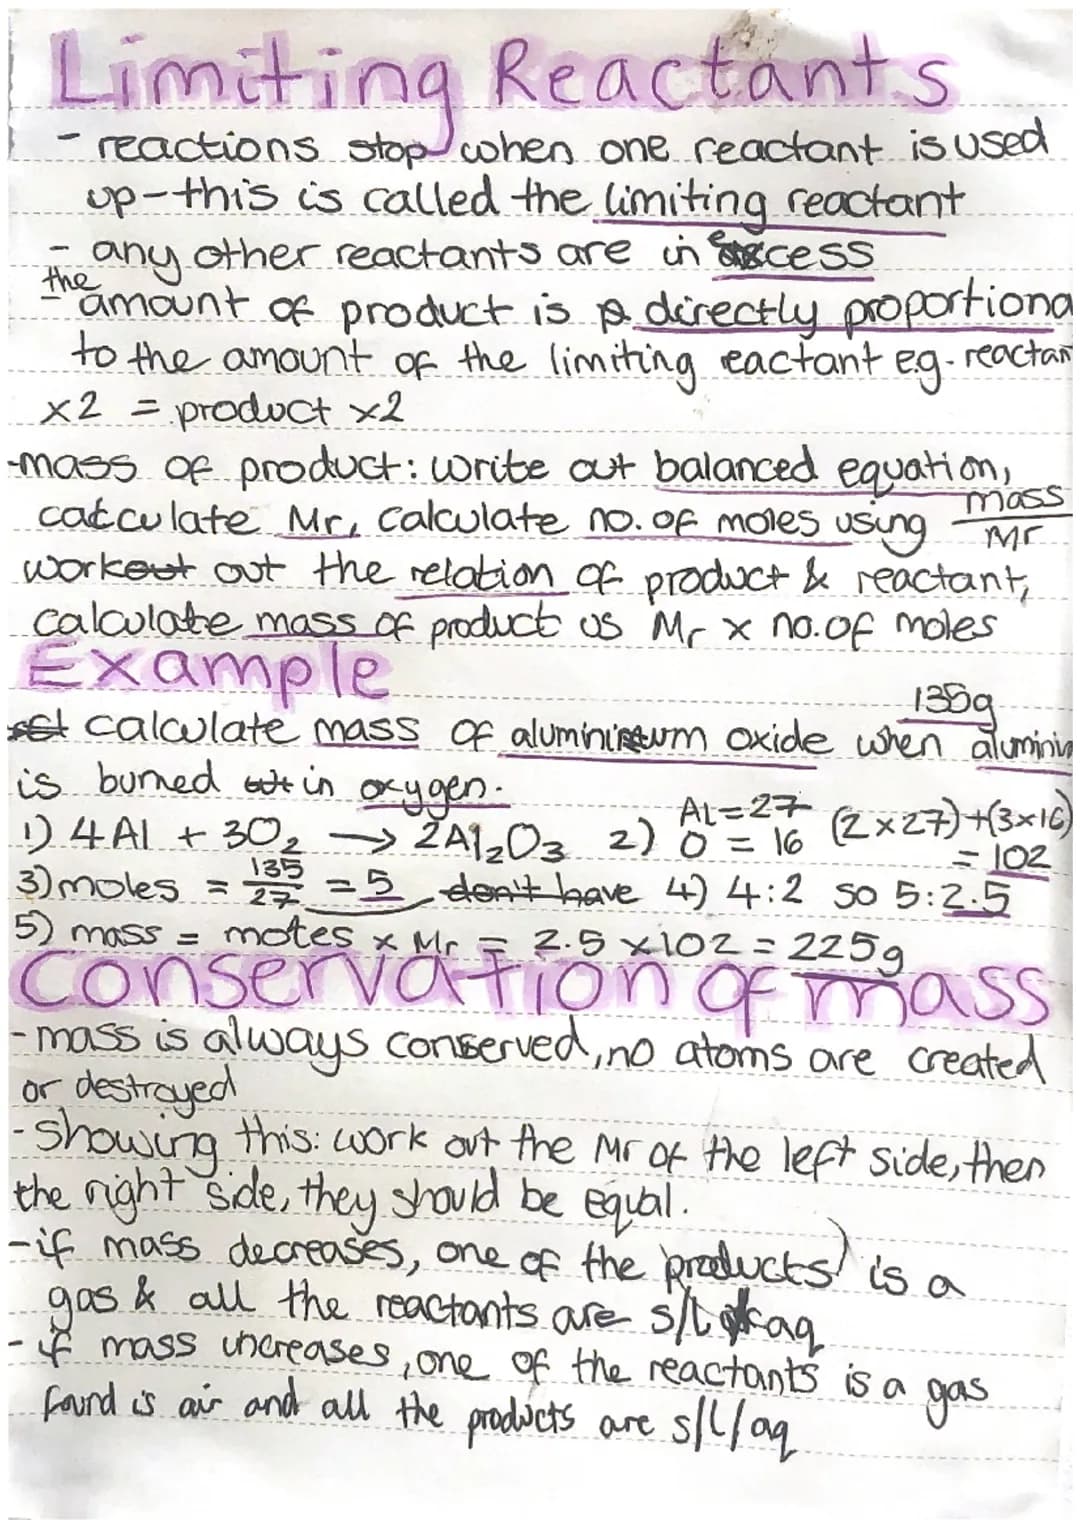 Limiting Reactants
- reactions stop when one reactant is used
up - this is called the limiting reactant
- any other reactants are in excess
- the amount of product is directly proportiona
to the amount of the limiting reactant e.g. reactan
x2 = product x2
-mass of product: write out balanced equation,
calculate Mr, calculate no. of moles using mass/Mr
work out the relation of product & reactant,
calculate mass of product us Mr x no. of moles
Example
135g
calculate mass of aluminium oxide when alumini
is burned in oxygen.
1) 4Al + 3O₂ → 2Al₂O₃ 2) Al = 27 O = 16 (2x27)+(3x16) = 102
3) moles = 135/27 = 5 don't have 4) 4:2 so 5:2.5
5) mass = moles x Mr = 2.5 x 102 = 225g
Conservation of mass
- mass is always conserved, no atoms are created
or destroyed
- showing this: work out the Mr of the left side, then
the right side, they should be equal.
- if mass decreases, one of the products is a
gas & all the reactants are s/l aq
- if mass increases, one of the reactants is a gas
found is air and all the products are s/l/aq